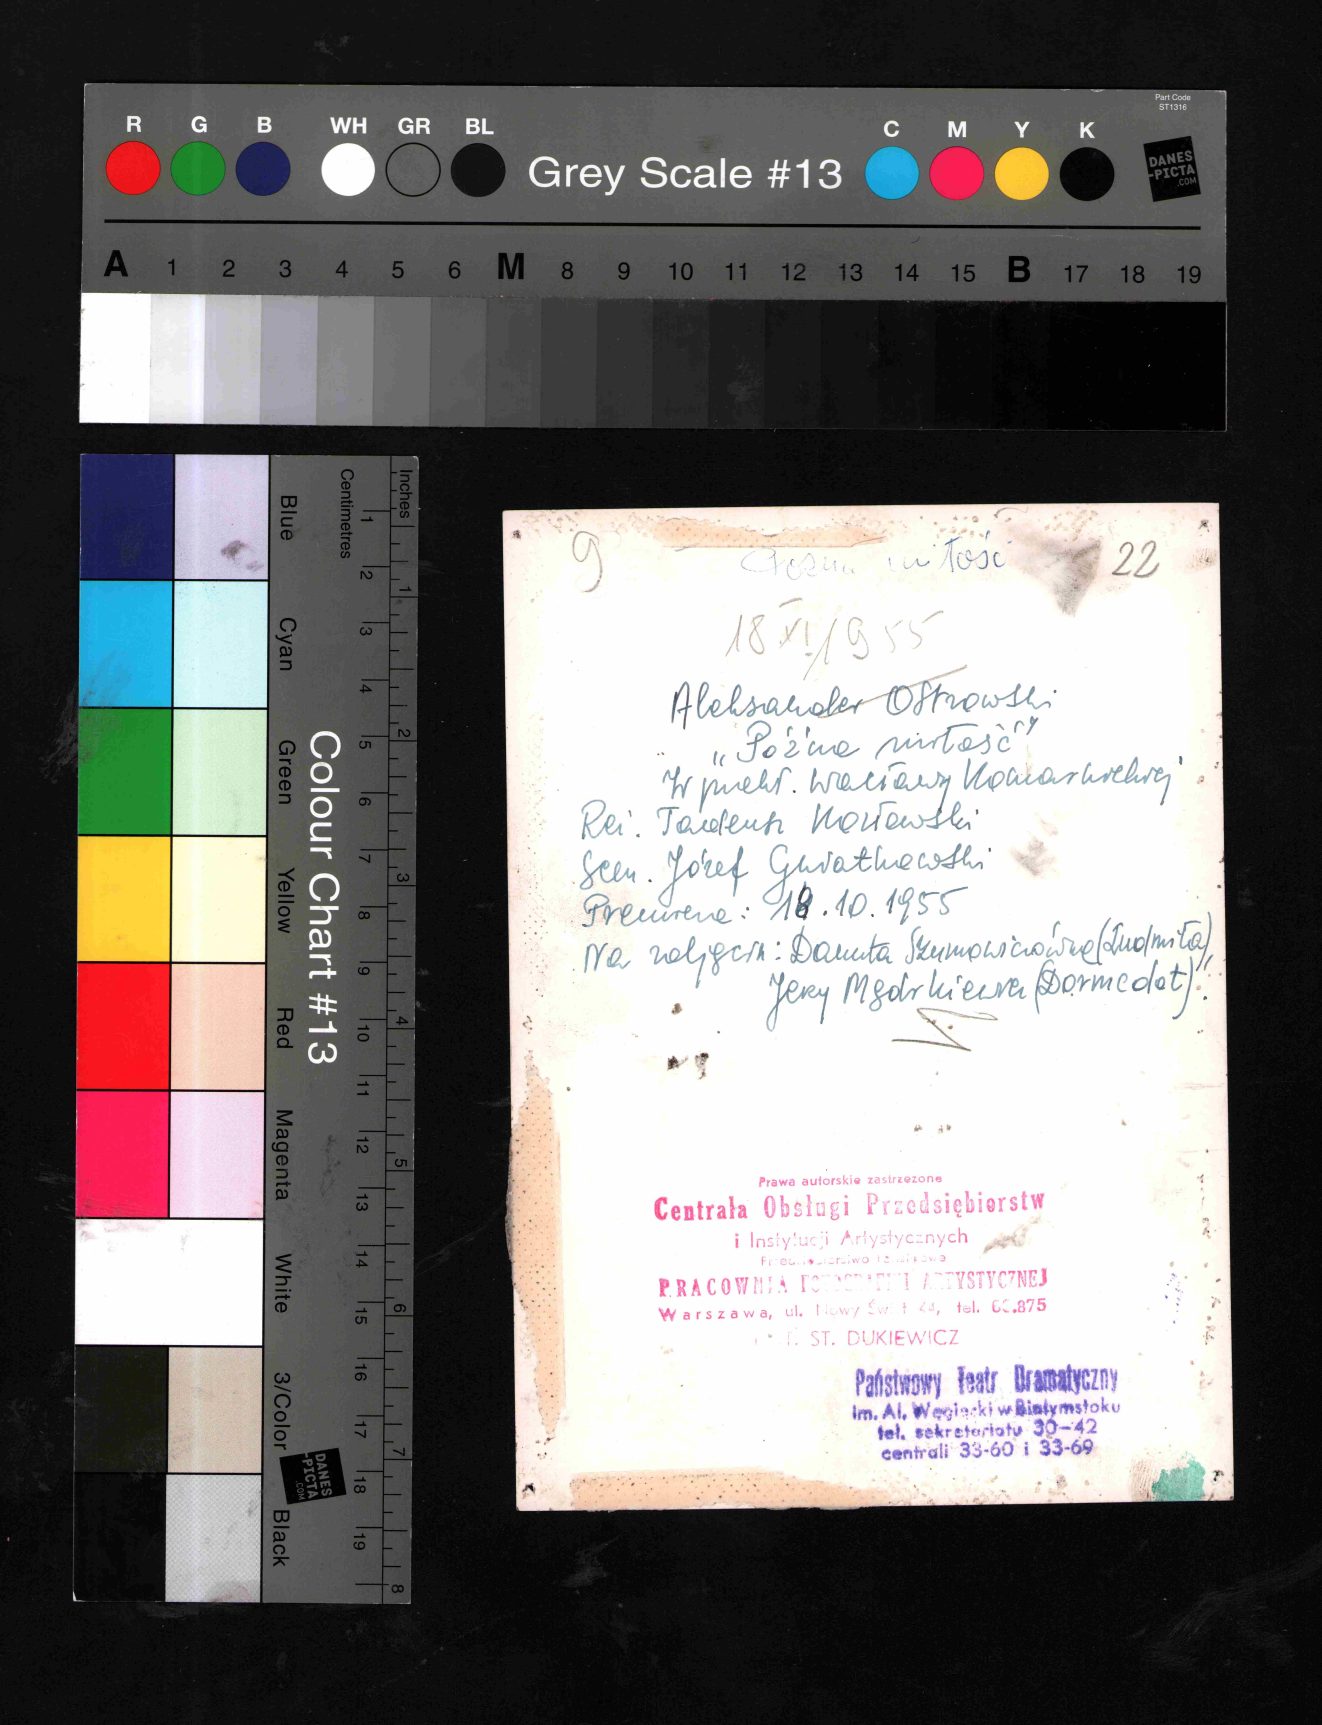 Part Code
ST1316
R G B WH GR BL Grey Scale #13 C M Y K
DANES
-PICTA
.COM
A 1 2 3 4 5 6 M 8 9 10 11 12 13 14 15 B 17 18 19
Colour Chart #13
Blue Cyan Green Yellow Red Magenta White 3/Color Black
Centimetres
1 2 3 4 5 6 7 8 9 10 11 12 13 14 15 16 17 18 19
Inches
1 2 3 4 5 6 7 8
DANES
-PICTA
.COM
9 miłość 22
18 XI/1955
Aleksander Ostrowski
„Późna miłość”
W przekł. Wacławy Komarnickiej
Reż. Tadeusz Kozłowski
Scen. Józef Gwiatkowski
Premiera: 18.10.1955
Na zdjęciu: Danuta Szumowiczówna (Ludmiła),
Jerzy (Dormedot).
Prawa autorskie zastrzeżone
Centrala Obsługi Przedsiębiorstw
i Instytucji Artystycznych
PRACOWNIA FOTOGRAFII ARTYSTYCZNEJ
Warszawa, ul. Nowy Świat tel.
ST. DUKIEWICZ
Państwowy Teatr Dramatyczny
im. Al. Węgierki w Białymstoku
tel. sekretariatu 30-42
centrali 33-60 i 33-69